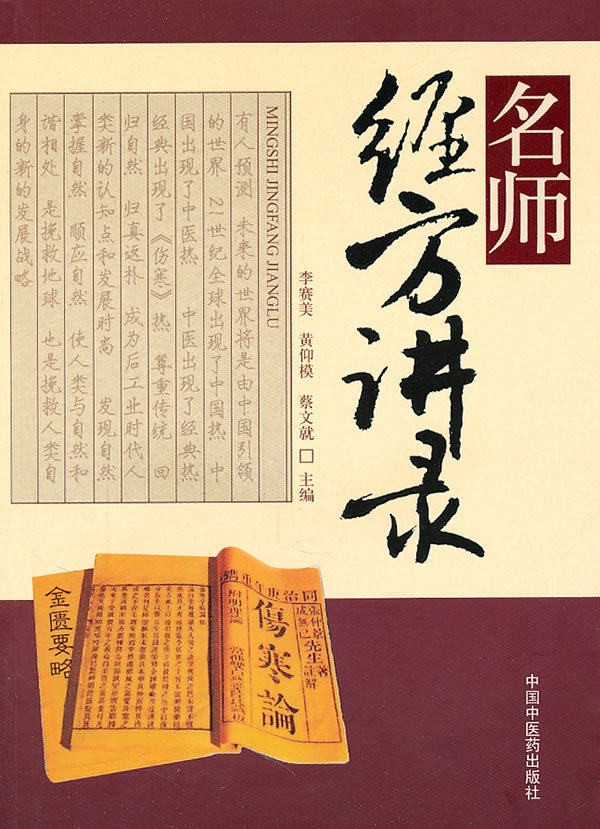 名师
经方讲录
李赛美 黄仰模 蔡文就 □ 主编
MINGSHI JINGFANG JIANGLU
有人预测 未来的世界将是由中国引领
的世界 21世纪全球出现了中国热 中
国出现了中医热 中医出现了经典热
经典出现了《伤寒》热 尊重传统 回
归自然 归真返朴 成为后工业时代人
类新的认知点和发展时尚 发现自然
掌握自然 顺应自然 使人类与自然和
谐相处 是挽救地球 也是挽救人类自
身的新的发展战略
同治庚
張仲景先生著
成無己註解
傷寒論
附明理論
金匮要略
中国中医药出版社